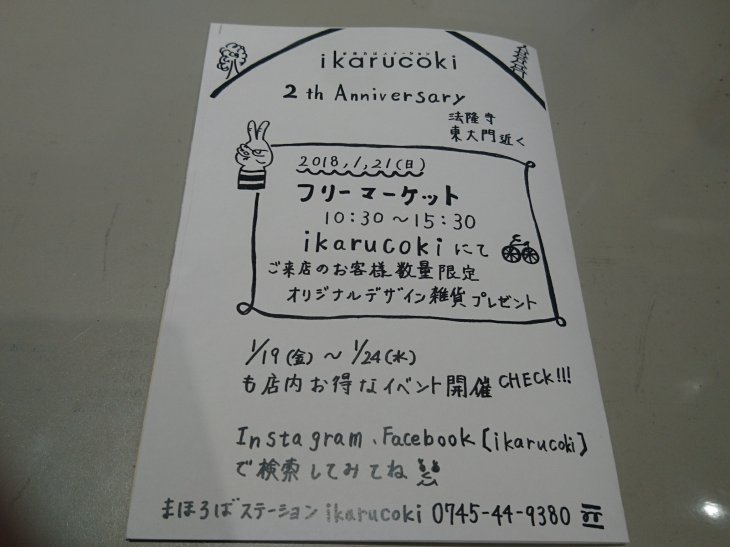 まほろばステーション
ikarucoki
2th Anniversary
法隆寺
東大門近く
2018,1,21(日)
フリーマーケット
10:30～15:30
ikarucokiにて
ご来店のお客様数量限定
オリジナルデザイン雑貨プレゼント
1/19(金)～1/24(水)
も店内お得なイベント開催CHECK!!!
Instagram、Facebook[ikarucoki]
で検索してみてね
まほろばステーションikarucoki 0745-44-9380